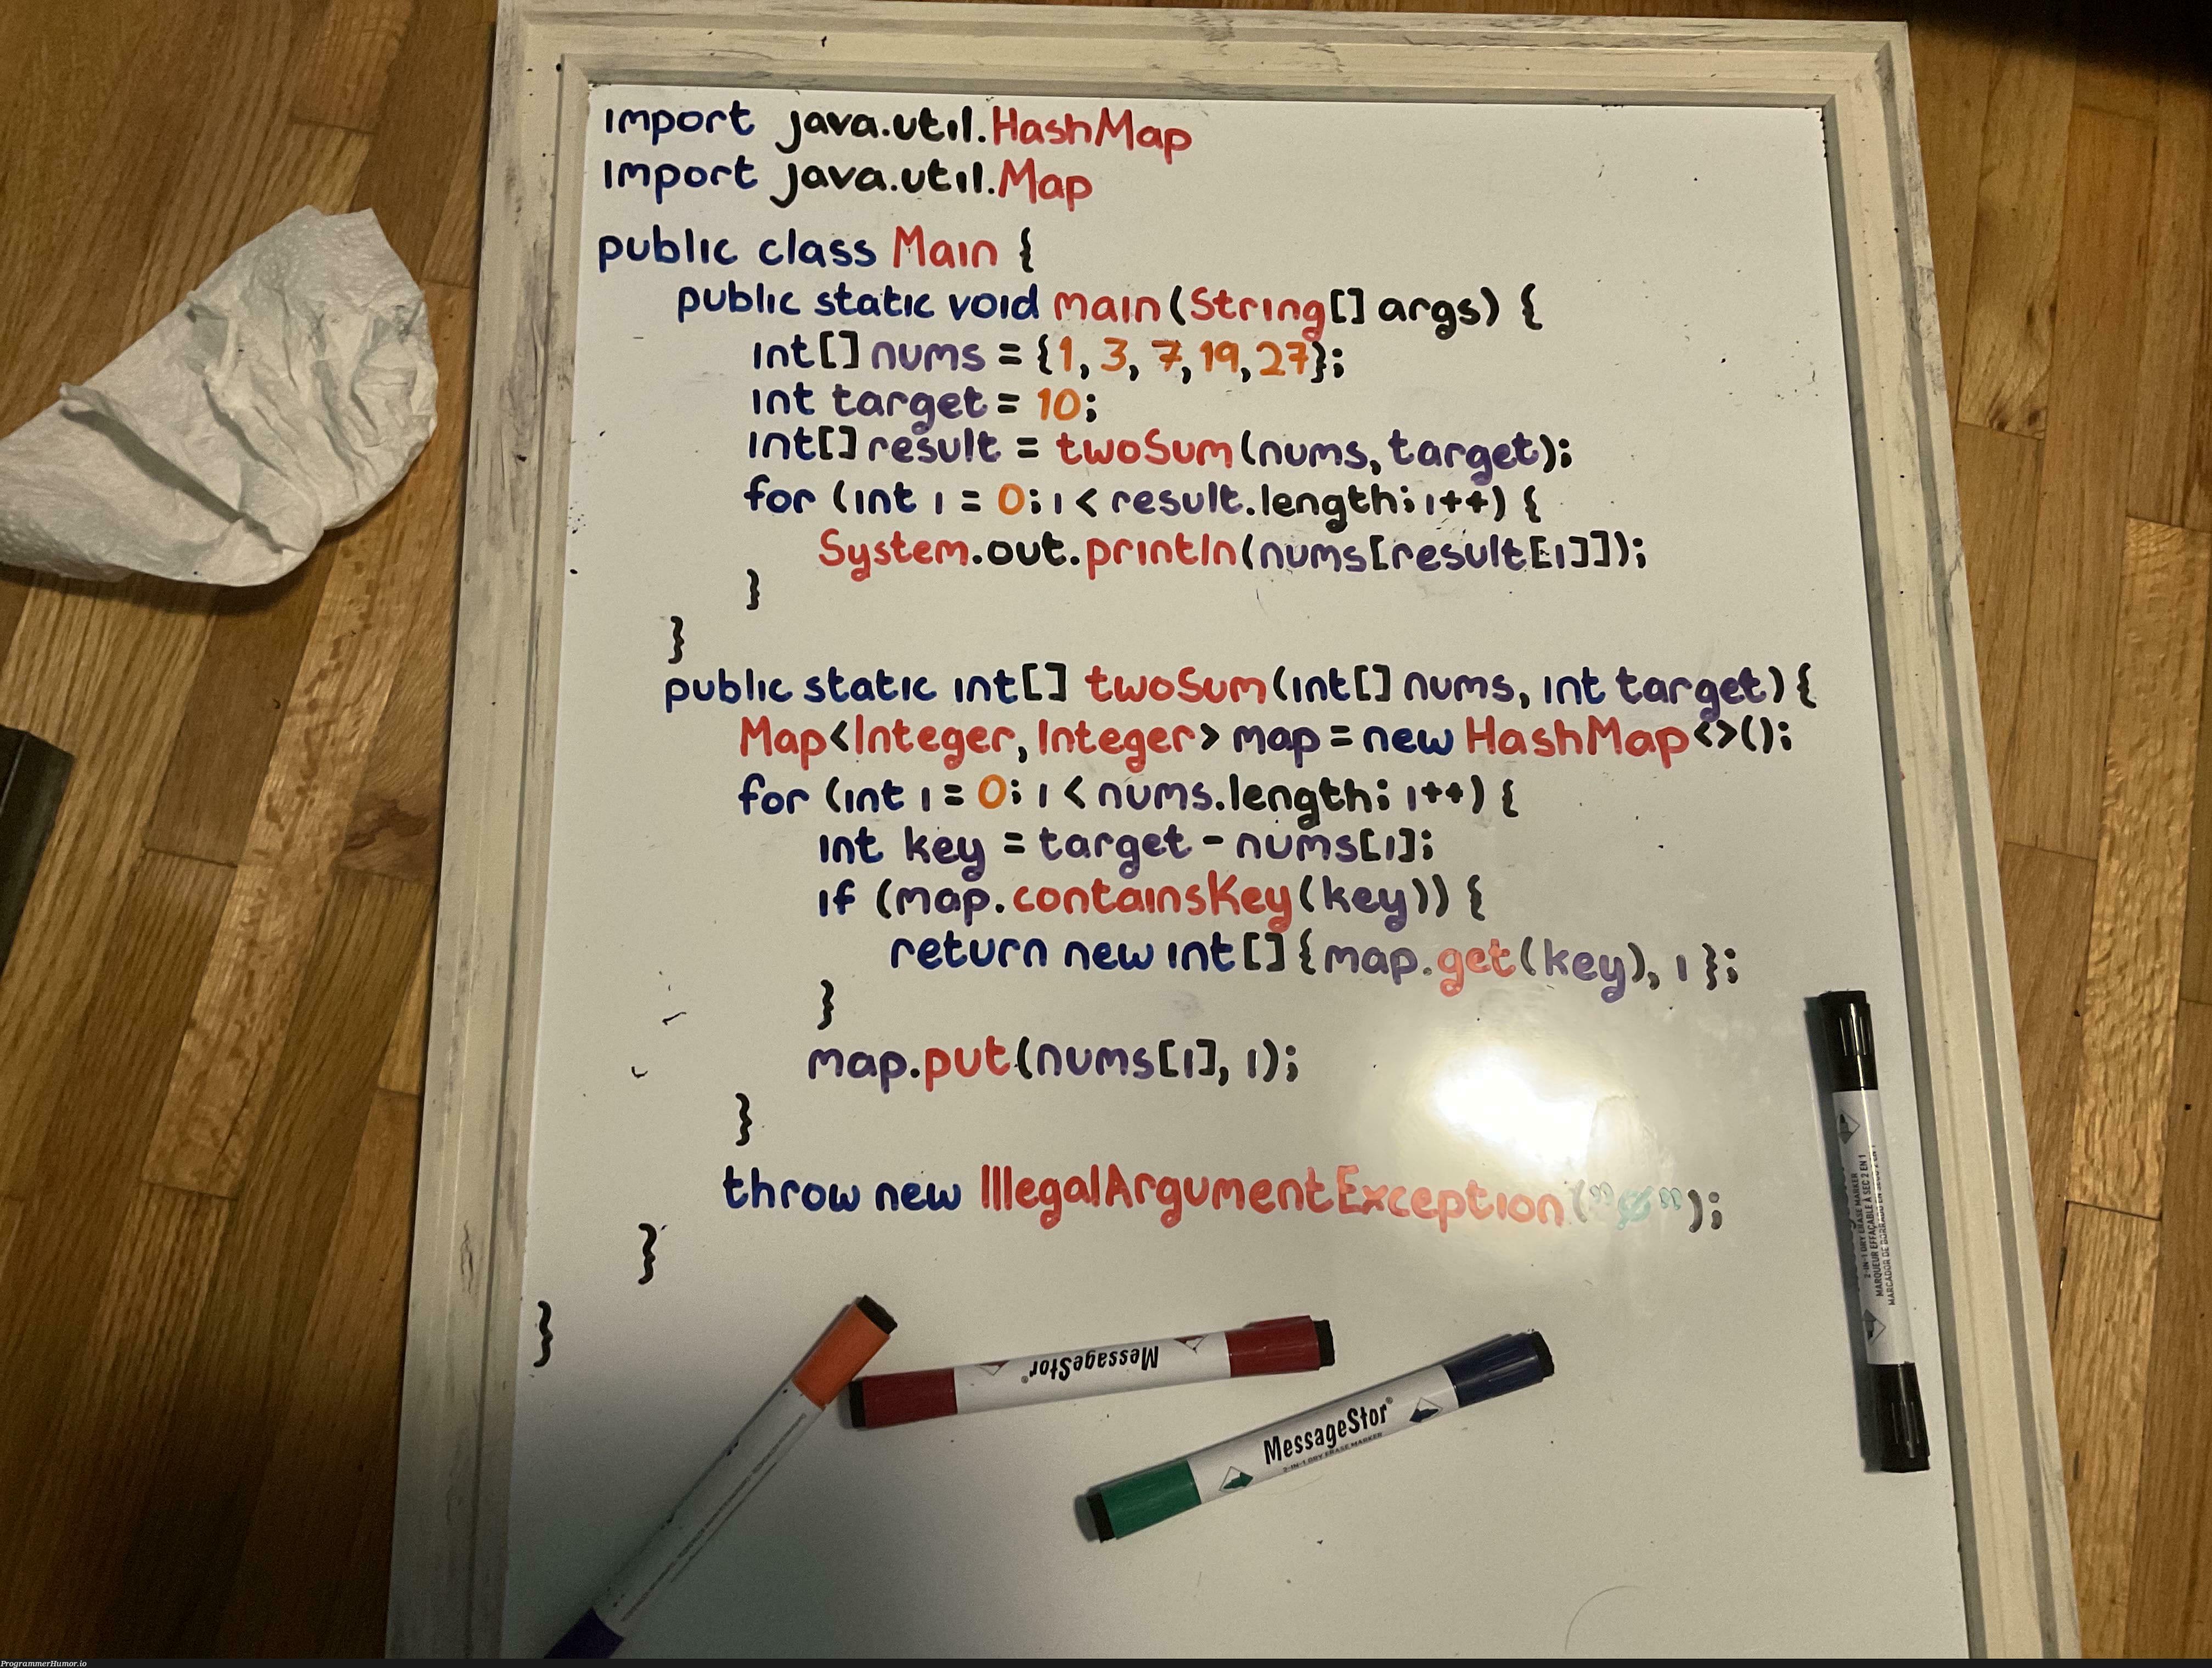 import java.util.HashMap
import java.util.Map
public class Main {
public static void main(String[] args) {
int[] nums = {1, 3, 7, 19, 27};
int target = 10;
int[] result = twoSum(nums, target);
for (int i = 0; i < result.length; i++) {
System.out.println(nums[result[i]]);
}
}
public static int[] twoSum(int[] nums, int target) {
Map<Integer, Integer> map = new HashMap<>();
for (int i = 0; i < nums.length; i++) {
int key = target - nums[i];
if (map.containsKey(key)) {
return new int[] {map.get(key), i};
}
map.put(nums[i], i);
}
throw new IllegalArgumentException("ø");
}
}
MessageStor®
MessageStor®
2-IN-1 DRY ERASE MARKER
2-IN-1 DRY ERASE MARKER
MARQUEUR EFFAÇABLE À SEC 2 EN 1
MARCADOR DE BORRADO EN SECO 2 EN 1
ProgrammerHumor.io